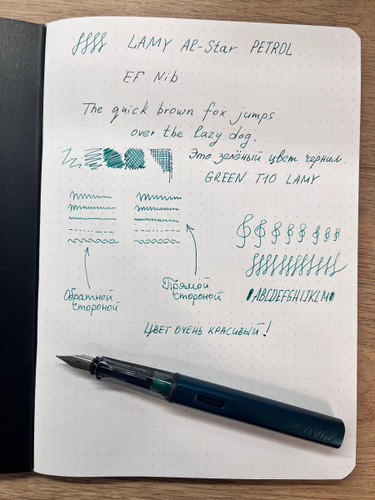 LAMY Al-Star PETROL
EF Nib
The quick brown fox jumps
over the lazy dog.
Это зелёный цвет чернил.
GREEN T10 LAMY
Обратной
стороной
Прямой
стороной
ABCDEFGHIJKLM
Цвет очень красивый!
LAMY